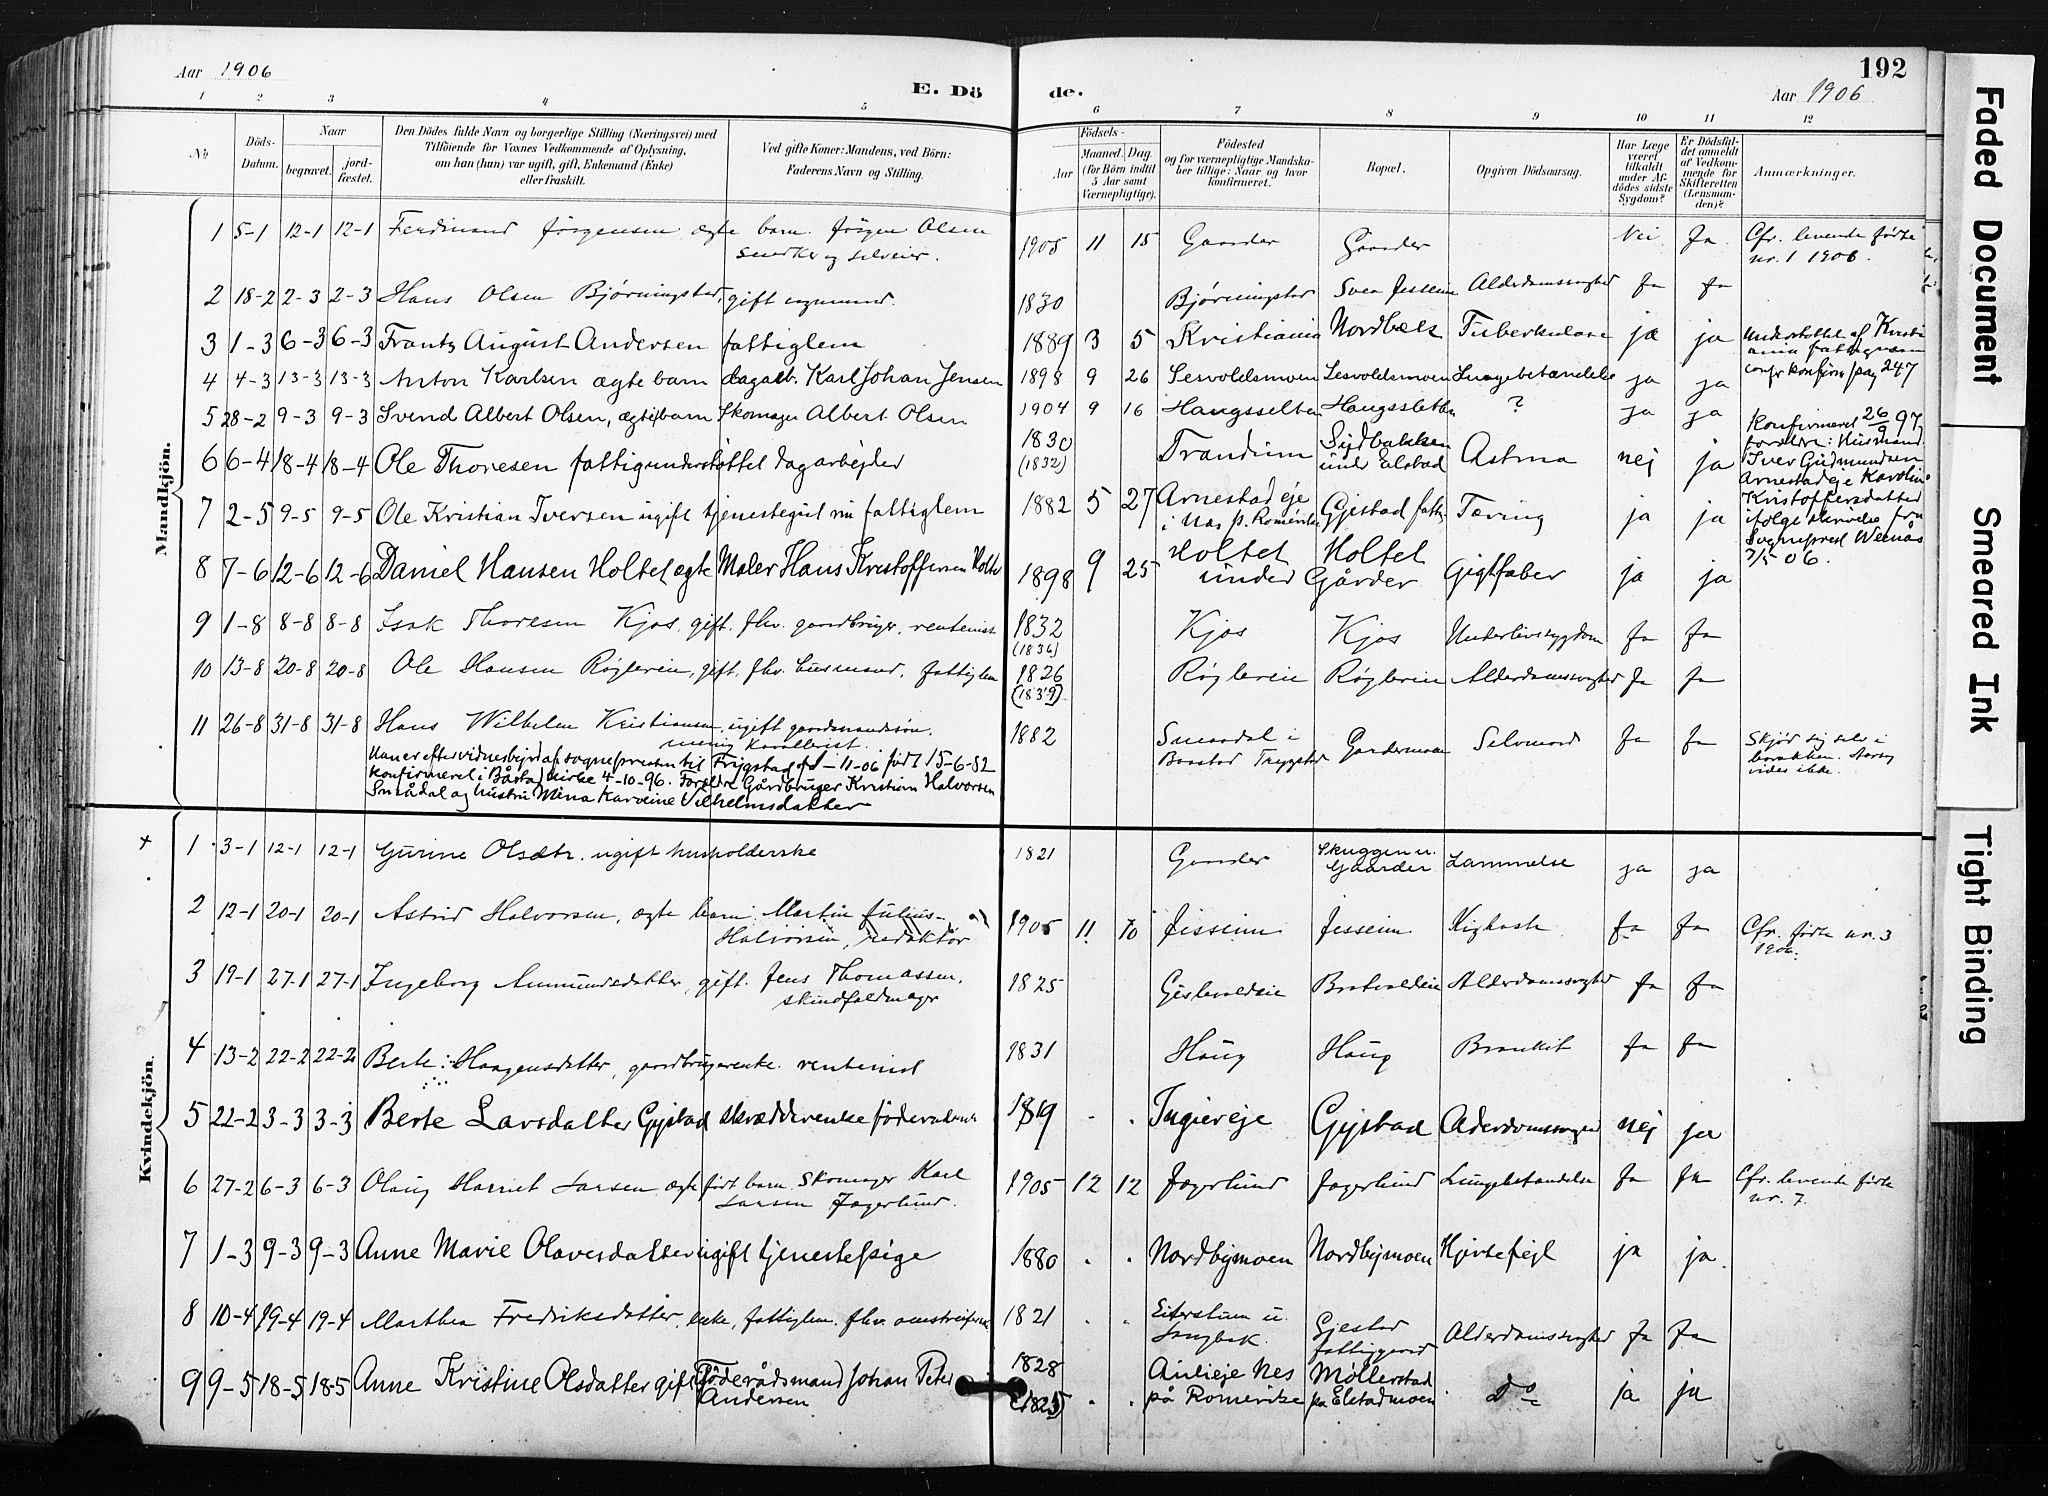 Aar 1906
E. Dö
de.
192
Aar 1906
1 2 3 4 5 6 7 8 9 10 11 12
No
Döds-Datum.
Naar
begravet.
jordfæstet.
Den Dödes fulde Navn og borgerlige Stilling (Næringsvei) med
Tilföiende for Voxnes Vedkommende af Oplysning,
om han (hun) var ugift, gift, Enkemand (Enke)
eller fraskilt.
Ved gifte Koner: Mandens, ved Börn:
Faderens Navn og Stilling.
Födsels-
Aar
Maaned. Dag.
(for Börn indtil
5 Aar samt
Værnepligtige).
Födested
og for værnepligtige Mandska-
ber tillige: Naar og hvor
konfirmeret.
Bopæl.
Opgiven Dödsaarsag.
Har Læge
været
tilkaldt
under Af-
dödes sidste
Sygdom?
Er Dödsfal-
det anmeldt
af Vedkom-
mende for
Skifteretten
(Lensman-
den)?
Anmærkninger.
Mandkjön.
1 5-1 12-1 12-1 Ferdinand Jörgensen ægte barn. Jörgen Olsen 1905 11 15 Gaarder Gaarder Nei Ja Cfr. levende födte
snedker og selveier. nr. 1 1906.
2 18-2 2-3 2-3 Hans Olsen Bjørningstad, gift 1830 Bjørningstad Jesseim Alderdomssvaghed Ja Ja
3 1-3 6-3 6-3 Frantz August Andersen fattiglem 1889 3 5 Kristiania Nordbæk Tuberkulose ja ja Understøttet af Kristi
ania fattigvæsen
confr konfirm pag 247
4 4-3 13-3 13-3 Anton Karlsen ægte barn dagarb. Karl Johan Jensen 1898 9 26 Sesvoldsmoen Lesvoldsmoen Lungebetændelse ja ja
5 28-2 9-3 9-3 Svend Albert Olsen, ægte barn Skomager Albert Olsen 1904 9 16 Haugssletten Haugssletten ? ja ja
6 6-4 18-4 18-4 Ole Thoresen fattigunderstøttet dagarbejder 1830 (1832) Trandum Sydbakken
under Elstad Astma nej ja
Konfirmeret 26/9 97,
foreldre: Husmand
Iver Gudmundsen
Arnestadeje Karoline
Kristoffersdatter
ifølge skrivelse fra
Sogneprest Wernås
7/5 06.
7 2-5 9-5 9-5 Ole Kristian Iversen ugift tjenestegut nu fattiglem 1882 5 27 Arnestad eje
i Nas p. Romerike Gjestad fattig Tæring ja ja
8 7-6 12-6 12-6 Daniel Hansen Holtet ægte Maler Hans Kristoffersen Holtet 1898 9 25 Holtet Holtet
under Gårder Gigtfeber ja ja
9 1-8 8-8 8-8 Isak Thoresen Kjos, gift. fhv. gaardbruger, rentenist 1832 (1836) Kjos Kjos Underlivssygdom Ja Ja
10 13-8 20-8 20-8 Ole Hansen Røglereie, gift, fhv. husmand, fattiglem 1826 (1839) Røglereie Røglereie Alderdomssvaghed Ja Ja
11 26-8 31-8 31-8 Hans Wilhelm Kristiansen, ugift gaardmandssøn, 1882 Smaadal i
Baastad Trygstad Gardermoen Selvmord Ja Ja Skjød sig selv i
barakken. Aarsag
vides ikke.
menig kavallerist.
Han er efter vidnesbyrd af sognepresten til Trygstad -11-06 født 15-6-82
konfirmeret i Båstad kirke 4-10-96. Foreldre Gårdbruger Kristian Halvorsen
Smådal og hustru Mina Karoline Vilhelmsdatter
Kvindekjön.
+ 1 3-1 12-1 12-1 Gurine Olsdtr. ugift husholderske 1821 Gaarder Skuggen u.
Gaarder Lammelse ja ja
2 12-1 20-1 20-1 Astrid Halvorsen, ægte barn Martin Julius
Halvorsen, redaktör 1905 11 10 Jesseim Jesseim Kighoste Ja Ja Cfr. födte nr. 3
1906.
3 19-1 27-1 27-1 Ingeborg Amundsdatter, gift. Jens Thomassen,
skindfeldmager 1825 Alderdomssvaghed Ja Ja
4 13-2 22-2 22-2 Berte Haagensdatter, gaardbrugerenke. rentenist 1831 Haug Haug Bronkit Ja Ja
5 22-2 3-3 3-3 Berte Larsdatter Gjestad skrædderenke 1819 Ingiereje Gjestad Aderdomssvaghed nej ja
6 27-2 6-3 6-3 Olaug Harriet Larsen ægte født barn Skomager Karl
Larsen Jagerlund. 1905 12 12 Jagerlund Jagerlund Lungebetændelse Ja Ja Cfr. levende födte
nr. 7.
7 1-3 9-3 9-3 Anne Marie Olavesdatter ugift tjenestepige 1880 Nordbymoen Nordbymoen Hjertefejl ja ja
8 10-4 19-4 19-4 Marthea Fredriksdatter, enke, fattiglem. fhv. omstreiferske 1821 Eiterstuen u.
Langbak. Gjestad
fattiggaard Alderdomssvaghed Ja Ja
9 9-5 18-5 18-5 Anne Kristine Olsdatter gift Föderådsmand Johan Peter
Andersen 1828 (1825) Aulieje Nes
på Romerike Møllerstad
på Elstadmoen Do ja ja
Faded Document
Smeared Ink
Tight Binding